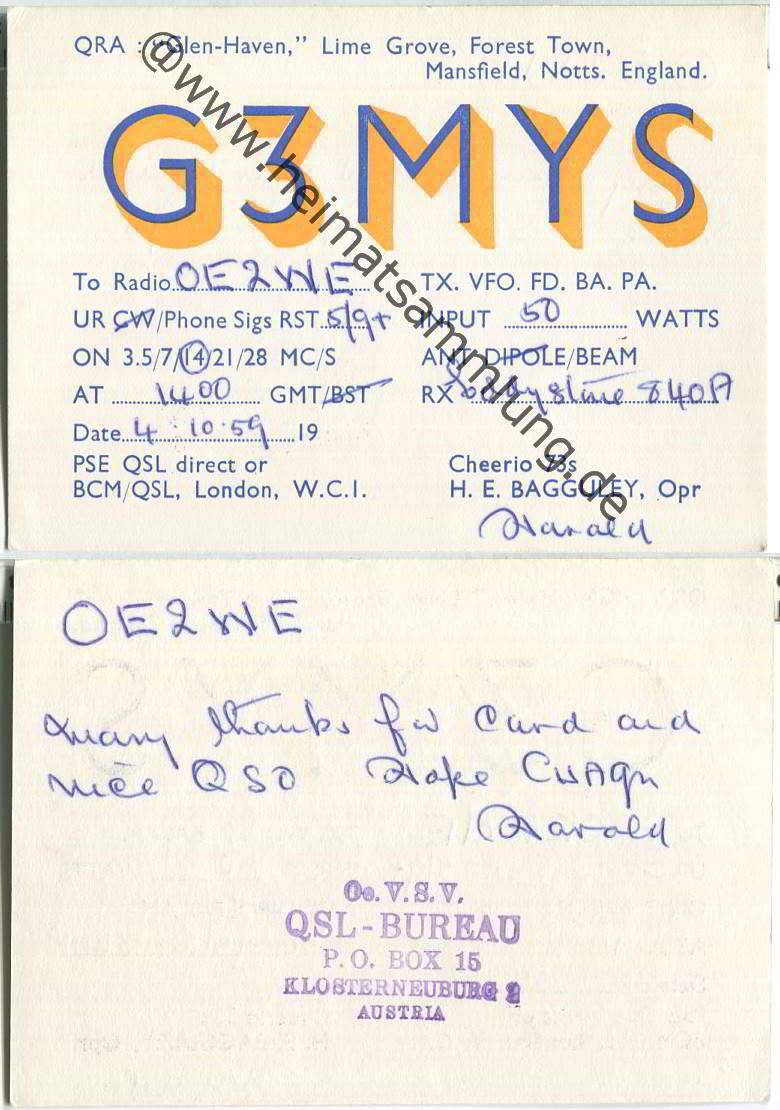 QRA : "Glen-Haven," Lime Grove, Forest Town,
Mansfield, Notts. England.
G3MYS
To Radio OE2WE TX. VFO. FD. BA. PA.
UR CW/Phone Sigs RST 5/9+ INPUT 50 WATTS
ON 3.5/7/14/21/28 MC/S ANT DIPOLE/BEAM
AT 1400 GMT/BST RX 840A
Date 4.10.59 19
PSE QSL direct or Cheerio 73s
BCM/QSL, London, W.C.1. H. E. BAGGULEY, Opr
Harald
@www.heimatsammlung.de
OE2WE
Many thanks for Card and
nice QSO Hope CUAGN
Harald
Oe. V. S. V.
QSL-BUREAU
P. O. BOX 15
KLOSTERNEUBURG 2
AUSTRIA